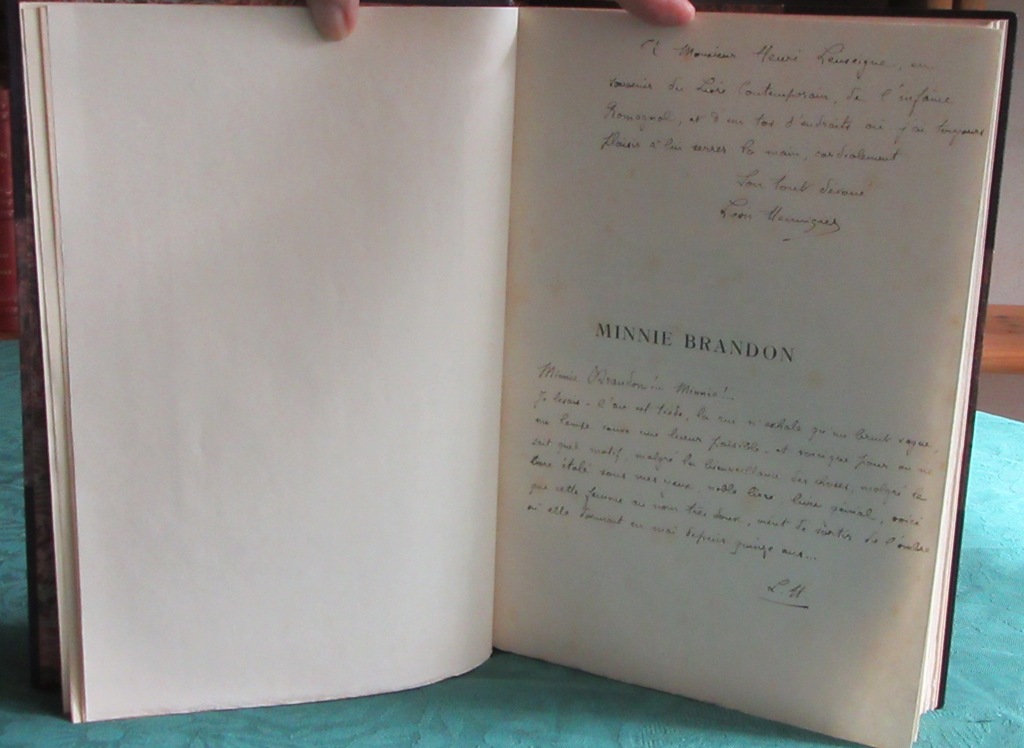 A Monsieur Henri Leuseigne, en
souvenir du Livre Contemporain, de l'infâme
Romagnol, et d'un tas d'endroits où j'ai toujours
plaisir à lui serrer la main, cordialement
Son tout dévoué
Léon Hennique
MINNIE BRANDON
Minnie Brandon!... Minnie!...
Je lisais – l'air est tiède, la rue n'exhale qu'un bruit vague,
ma lampe sauve une lueur paisible – et voici que pour on ne
sait quel motif, malgré la bienveillance des choses, malgré le
livre étalé sous mes yeux, noble livre, livre génial, voici
que cette femme au nom très doux, vient de sortir de l'ombre
où elle dormait en moi depuis quinze ans...
L. H.